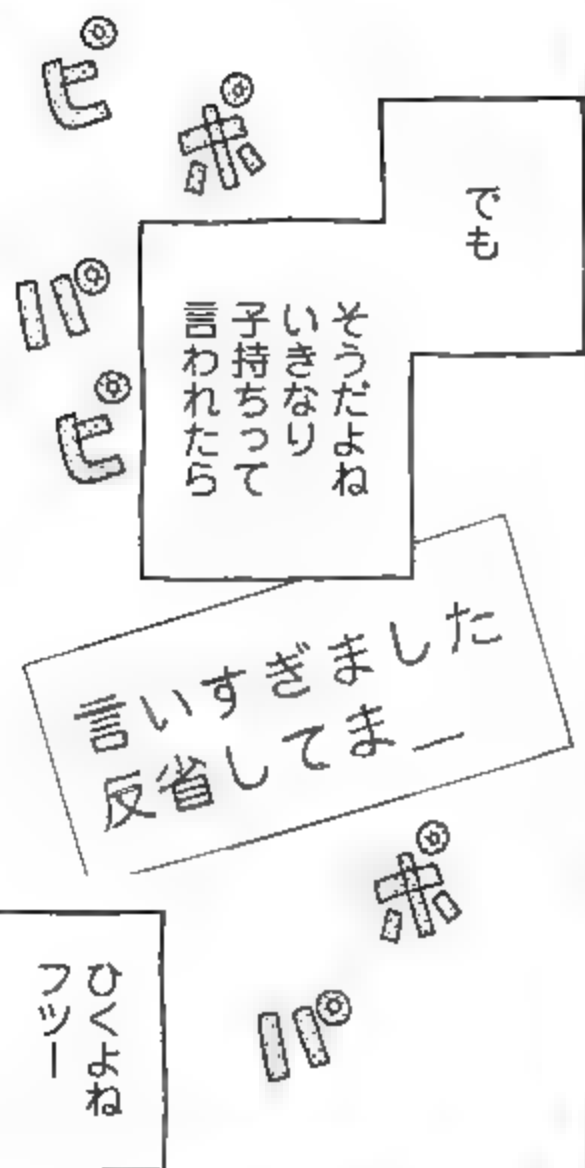 でも
そうだよね
いきなり
子持ちって
言われたら
ピ
ポ
パ
ピ
言いすぎました
反省してま_
ポ
パ
ひくよね
フツー